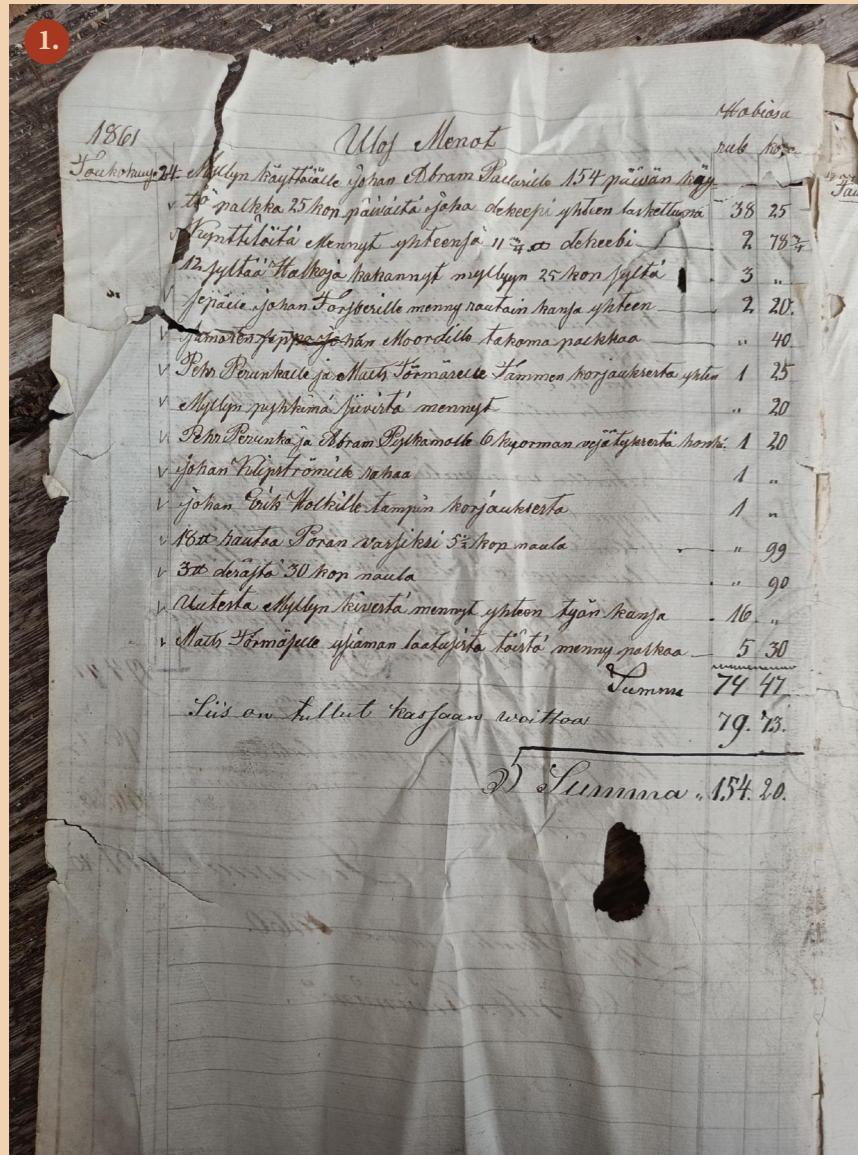 1.
Hobiasa
1861 Ulos Menot rub kop
Toukokuu 24 Myllyn käyttäjälle Johan Abram Paltarille 154 päivän käy-
tö palkka 25 kop päivältä joha dekeepi yhteen laskettuna 38 25
Kynttilöitä Mennyt yhteensä 11 3/4 tt dekeebi 2 78 3/4
12 syltää Halkoja hakannyt myllyyn 25 kop syltä 3 „
Sepälle Johan Forsberille menny rautain kansa yhteen 2 20.
Seppa Johan Moordille takoma palkkaa „ 40
Pehr Perunkalle ja Matts Törmäselle Tammen korjauksesta yhten 1 25
Myllyn pyhkimä siivistä mennyt „ 20
Pehr Perunka ja Abram Pylkämolle 6 kuorman vejätyksestä 1 20
Johan Klipströmille rahaa 1 „
Johan Erik Holkille tampin korjauksesta 1 „
18 tt rautaa Poran varsiksi 5 1/2 kop naula „ 99
3 tt derästä 30 kop naula „ 90
Uutesta Myllyn kivestä mennyt yhteen työn kansa 16 „
Matts Törmäselle laatusista töistä menny palkaa 5 30
Summa 74 47
Siis on tullut kassaan woittoa 79. 73.
Summa „ 154. 20.